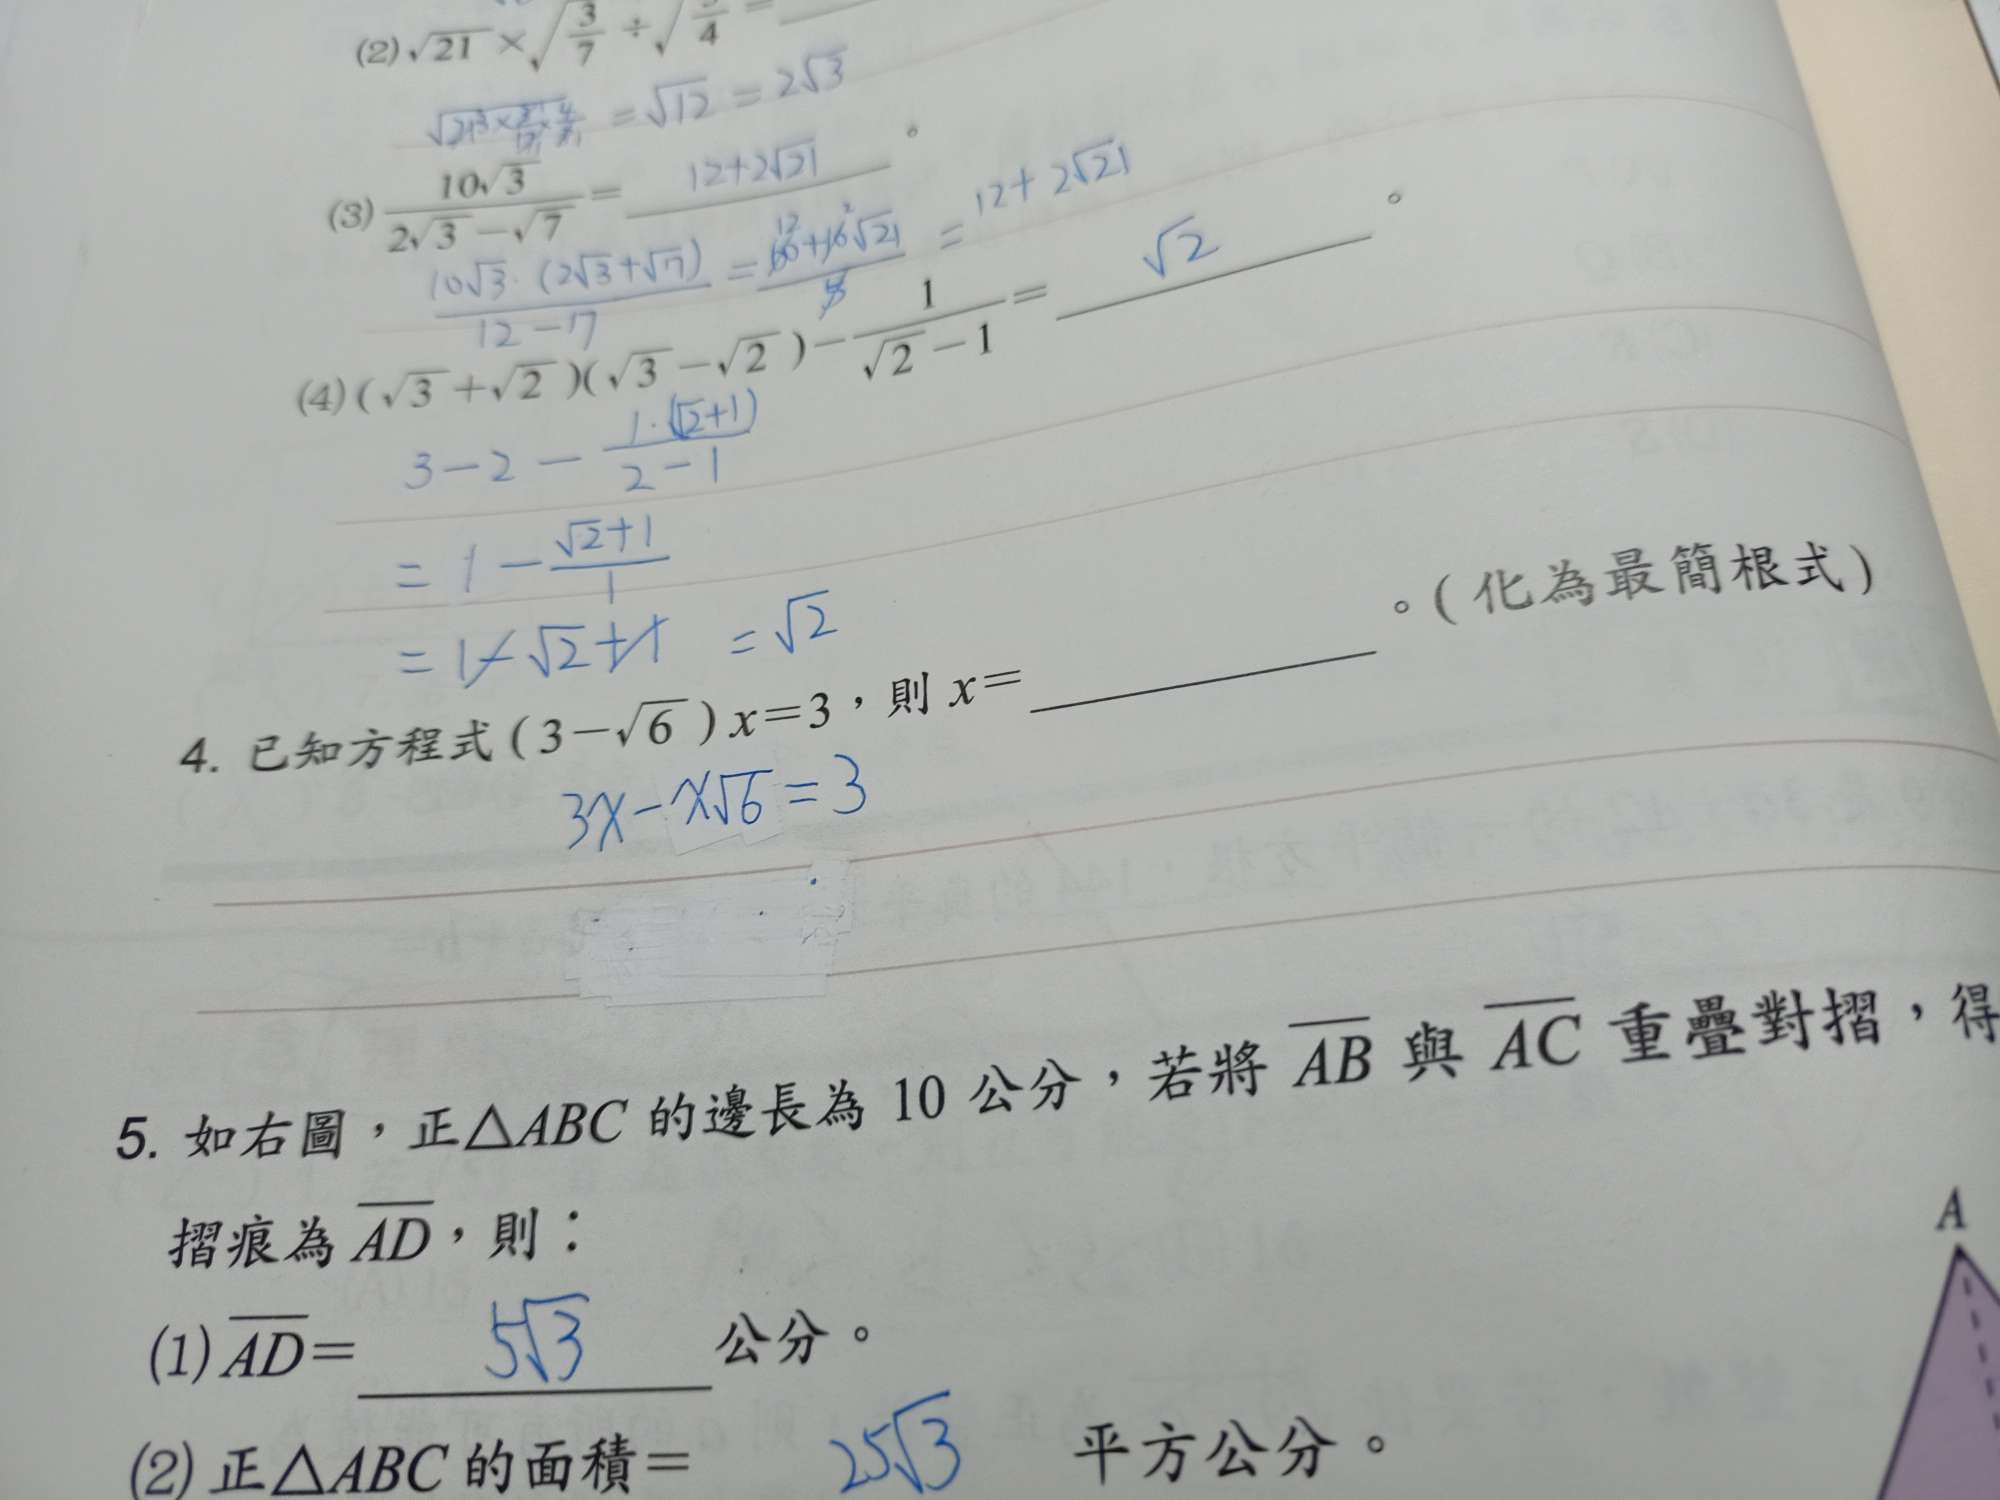 (2)√21×√(3/7)÷√(3/4)=
√(21×3/7×4/3) =√12 =2√3
(3) 10√3/(2√3-√7) = 12+2√21 。
10√3·(2√3+√7)/(12-7) = (60+10√21)/5 = 12+2√21
(4) (√3+√2)(√3-√2)-1/(√2-1)= √2 。
3-2-1·(√2+1)/(2-1)
=1-(√2+1)/1
=1-√2+1 =√2
4. 已知方程式(3-√6)x=3，則 x= 。(化為最簡根式)
3x-x√6=3
5. 如右圖，正△ABC 的邊長為 10 公分，若將 AB 與 AC 重疊對摺，得
摺痕為 AD，則：
A
(1) AD= 5√3 公分。
(2) 正△ABC 的面積= 25√3 平方公分。